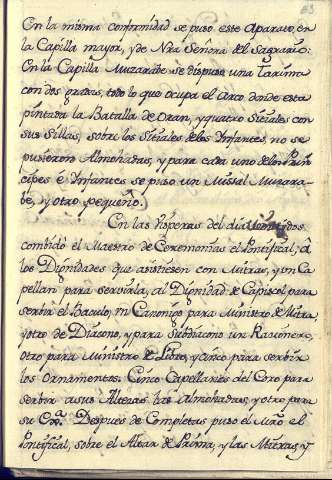 83
En la misma conformidad se puso este Aparato, en
la Capilla mayor, y de Nrâ Señora del Sagrario:
En la Capilla Muzarabe se dispuso una Tarima
con dos gradas, todo lo que ocupa el Arco, donde esta
pintada la Batalla de Oran, y quatro Sitiales con
sus Sillas, sobre los Sitiales de los Infantes, no se
pusieron Almohadas, y para cada uno de los Prin
cipes è Infantes se puso un Missal Muzara-
be, y otro pequeño.
En las Visperas del dia
combidó el Maestro de Ceremonias el Pontifical; â
los Dignidades que assisten con Mitras, y un Ca
pellan para servirla, al Dignidad de Capiscol para
servir el Baculo, un Canonigo para Ministro de Mitra
y otro de Diacono, y para Subdiacono un Racionero,
otro para Ministro de Libro, y cinco para servir
los ornamentos. Cinco Capellanes del Coro para
servir a sus Altezas las Almohadas, y otro para
su Despues de Completas puso el Mrô el
Pontifical, sobre el Altar de Prima, y las Mitras, y